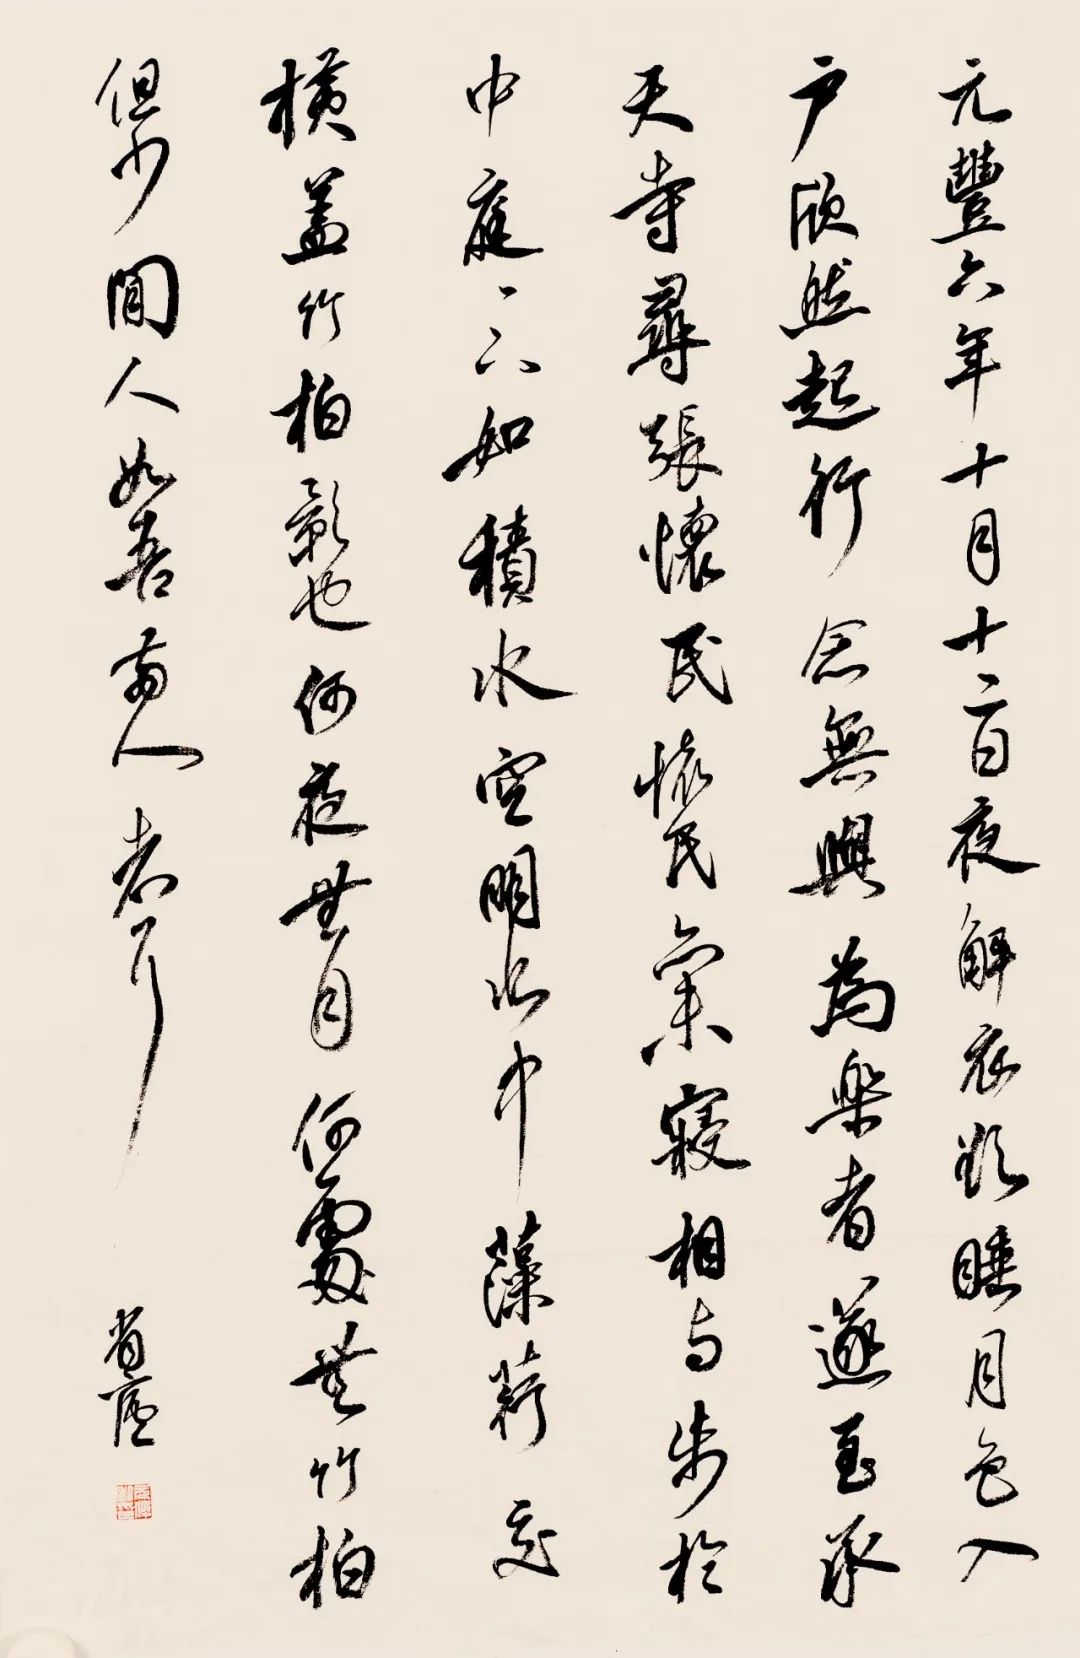 元豐六年十月十二日夜解衣欲睡月色入
户欣然起行念無與為樂者遂至承
天寺尋張懷民懷民亦未寢相与步於
中庭〻下如積水空明水中藻荇交
橫盖竹柏影也何夜無月何處無竹柏
但少閒人如吾兩人者耳
省廬